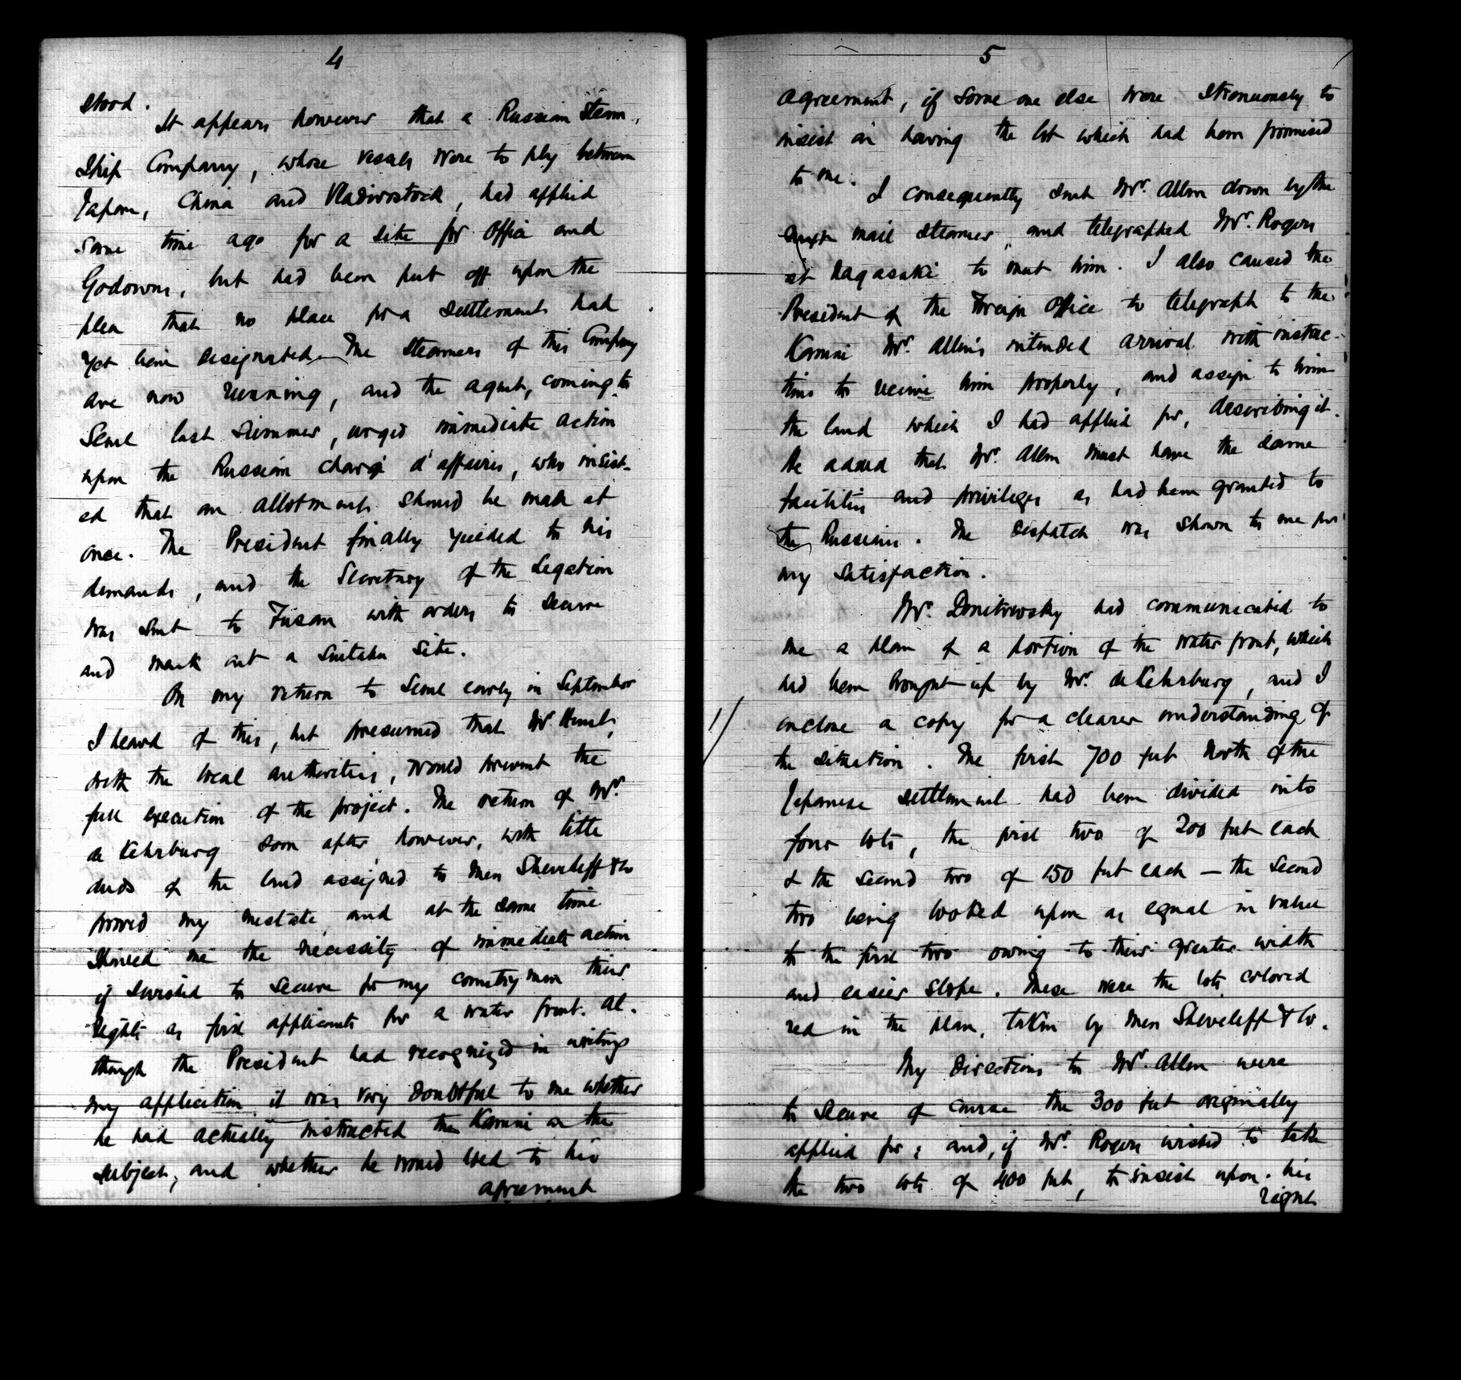 4
stood.
It appears however that a Russian Steam-
Ship Company, whose vessels were to ply between
Japan, China and Vladivostock, had applied
some time ago for a site for Office and
Godowns, but had been put off upon the
plea that no place for a settlement had
yet been designated. The steamers of this Company
are now running, and the agent, coming to
Seoul last summer, urged immediate action
upon the Russian chargé d'affaires, who insist-
ed that an allotment should be made at
once. The President finally yielded to his
demands, and the Secretary of the Legation
was sent to Fusan with orders to secure
and mark out a suitable site.
On my return to Seoul early in September
I heard of this, but presumed that Mr Hunt,
with the local authorities, would prevent the
full execution of the project. The return of Mr.
de Kehrburg soon after, however, with title
deeds of the land assigned to Mess Sheveleff & Co
proved my mistake, and at the same time
showed me the necessity of immediate action
if I wished to secure for my countrymen their
rights as first applicants for a water front. Al-
though the President had recognized in writing
my application, it was very doubtful to me whether
he had actually instructed the Kamni on the
subject, and whether he would hold to his
agreement
5
agreement, if some one else were strenuously to
insist on having the lot which had been promised
to me.
I consequently sent Mr. Allen down by the
next mail steamer, and telegraphed Mr. Rogers
at Nagasaki to meet him. I also caused the
President of the Foreign Office to telegraph to the
Kamni Mr. Allen's intended arrival with instruc-
tions to receive him properly, and assign to him
the land which I had applied for, describing it.
He added that Mr. Allen must have the same
facilities and privileges as had been granted to
the Russians. The despatch was shown to me for
my satisfaction.
Mr. Dmitrevsky had communicated to
me a plan of a portion of the water front, which
had been brought up by Mr. de Kehrburg, and I
1/
enclose a copy for a clearer understanding of
the situation. The first 700 feet North of the
Japanese settlement had been divided into
four lots, the first two of 200 feet each
& the second two of 150 feet each — the second
two being looked upon as equal in value
to the first two owing to their greater width
and easier slope. These were the lots colored
red in the plan, taken by Mess Sheveleff & Co.
My directions to Mr. Allen were
to secure of course the 300 feet originally
applied for; and, if Mr. Rogers wished to take
the two lots of 400 feet, to insist upon his
right